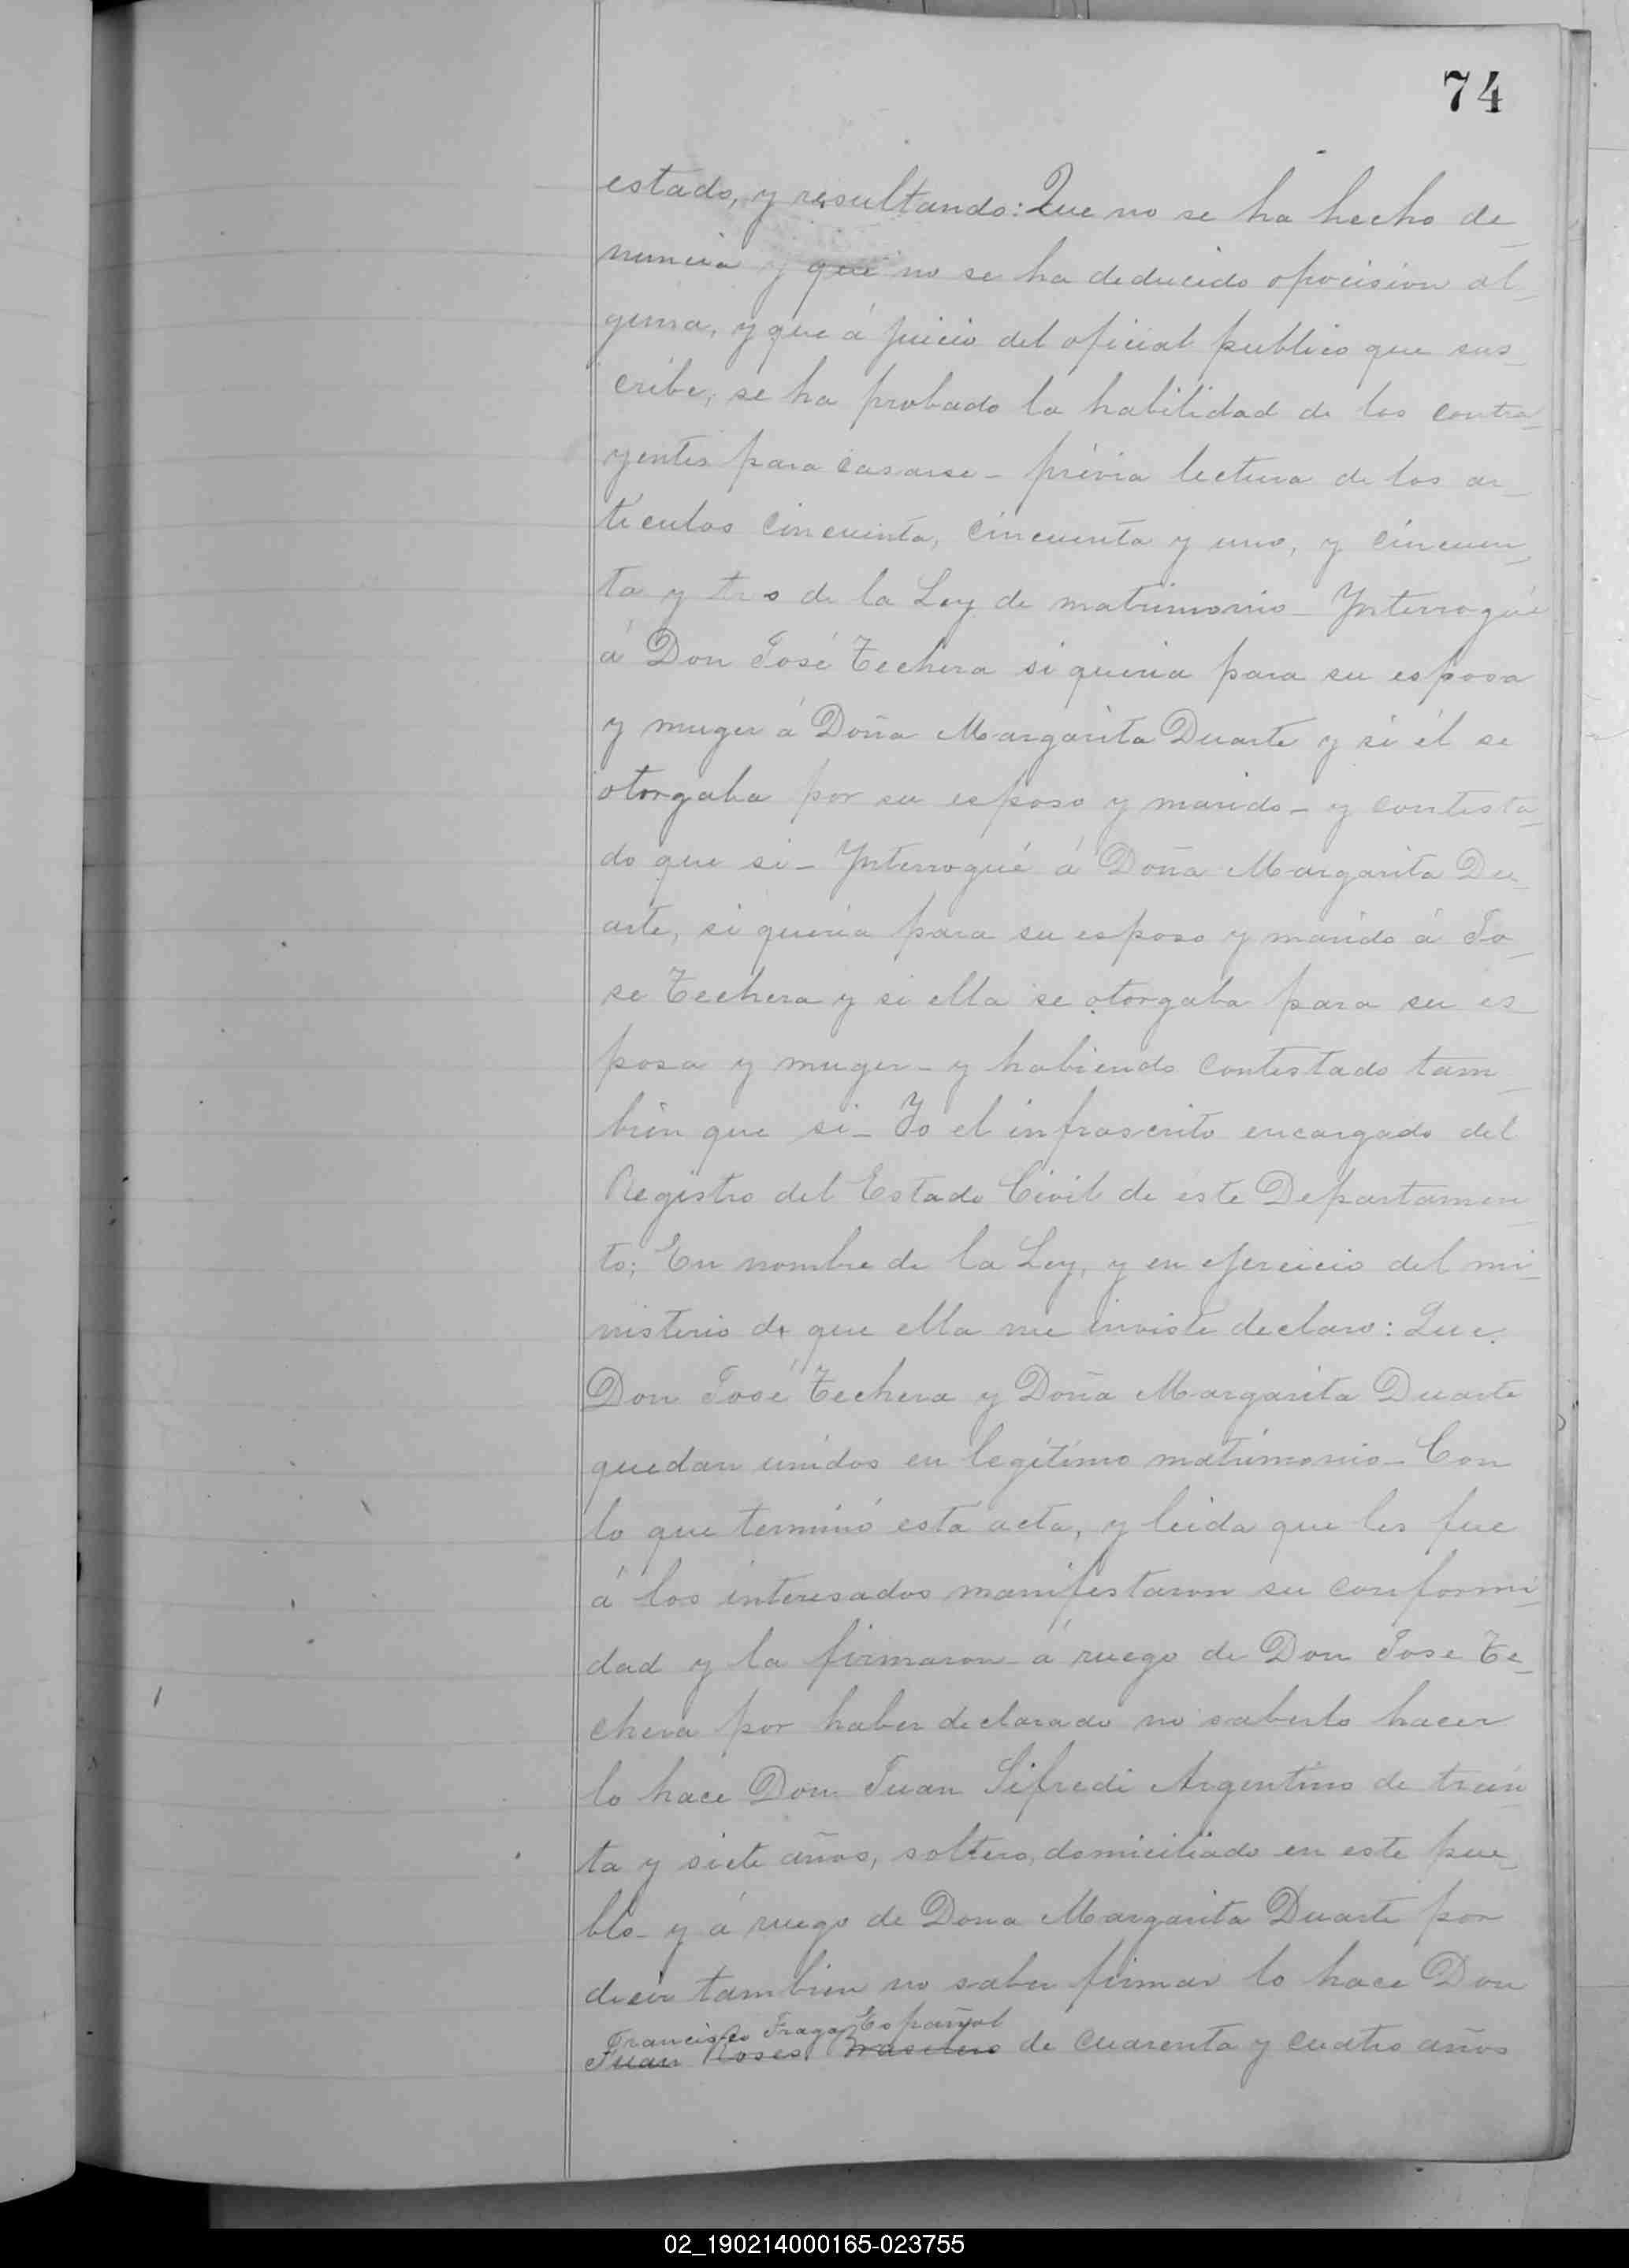 74
estado, y resultando: Que no se ha hecho de_
nuncia y que no se ha deducido oposision al_
guna, y que á juicio del oficial publico que sus_
cribe, se ha probado la habilidad de los contra_
yentes para casarse_ prévia lectura de los ar_
ticulos cincuenta, cincuenta y uno, y cincuen_
ta y tres de la Ley de matrimonio_ Ynterrogué
á Don José Techera si queria para su esposa
y muger á Doña Margarita Duarte y si él se
otorgaba por su esposo y marido_ y contesta_
do que si_ Ynterrogué á Doña Margarita Du_
arte, si queria para su esposo y marido á Jo_
se Techera y si ella se otorgaba para su es_
posa y muger_ y habiendo contestado tam_
bien que si_ Yo el infrascrito encargado del
Registro del Estado Civil de éste Departamen_
to; En nombre de la Ley, y en ejercicio del mi_
nisterio de que ella me inviste declaro: Que
Don José Techera y Doña Margarita Duarte
quedan unidos en legítimo matrimonio_ Con
lo que terminó esta acta, y leida que les fue
á los interesados manifestaron su conformi_
dad y la firmaron_ á ruego de Don Jose Te_
chera por haber declarado no saberlo hacer
lo hace Don Juan Sifredi Argentino de trein_
ta y siete años, soltero, domiciliado en este pue_
blo_ y á ruego de Dona Margarita Duarte por
decir tambien no saber firmar lo hace Don
Francisco Fraga Español
Juan de cuarenta y cuatro años
02_190214000165-023755